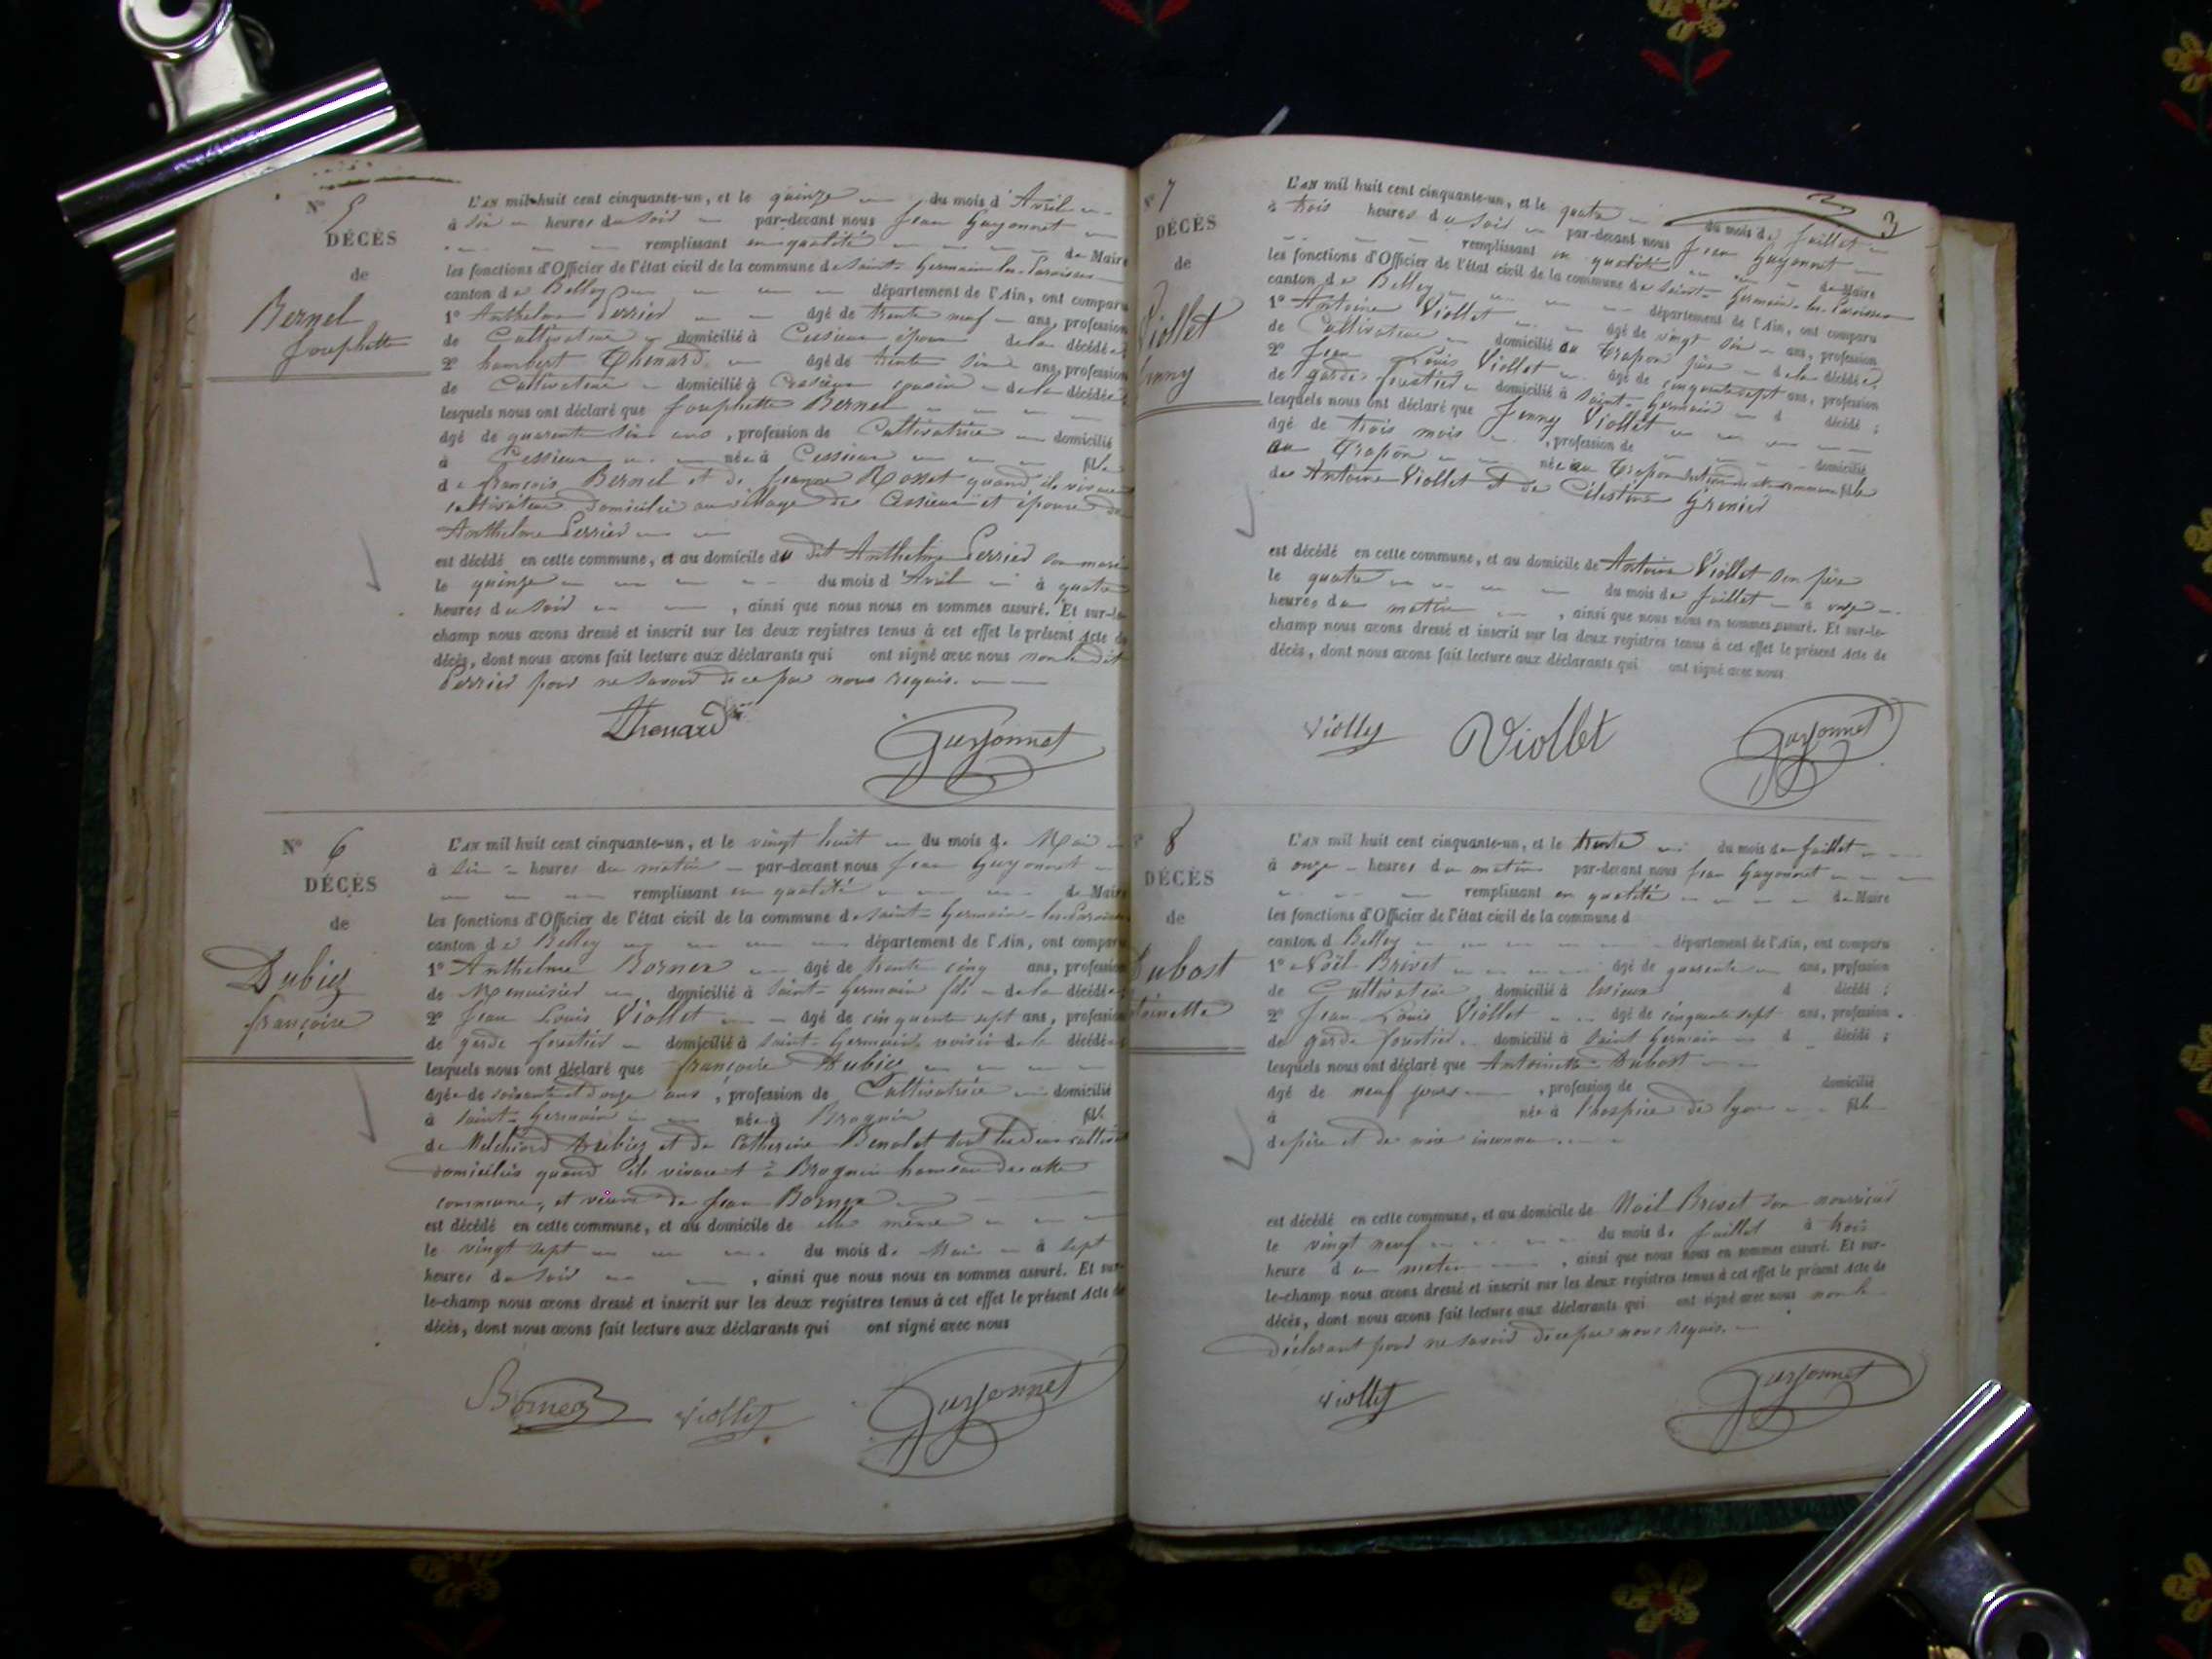 N° 5
DÉCÈS
de
Bernel
Josephette
L'AN mil huit cent cinquante-un, et le quinze du mois d'Avril
à six heures du soir par-devant nous Jean Guyonnet
remplissant en qualité de Maire
les fonctions d'Officier de l'état civil de la commune de Saint-Germain-les-Paroisses
canton de Belley département de l'Ain, ont comparu
1° Anthelme Perrier âgé de trente neuf ans, profession
de Cultivateur domicilié à Cessieux époux de la décédée
2° Chenard âgé de trente ans, profession
de Cultivateur domicilié à Cessieux cousin de la décédée
lesquels nous ont déclaré que Josephette Bernel
âgé de quarante ans, profession de Cultivatrice domicilié
à Cessieux née à Cessieux fille
de françois Bernel et de Jeanne Rosset quand ils vivaient
cultivateurs domiciliés au village de Cessieux et épouse de
Anthelme Perrier
est décédé en cette commune, et au domicile du dit Anthelme Perrier son mari
le quinze du mois d'Avril à quatre
heures du soir, ainsi que nous nous en sommes assuré. Et sur-le-
champ nous avons dressé et inscrit sur les deux registres tenus à cet effet le présent Acte de
décès, dont nous avons fait lecture aux déclarants qui ont signé avec nous non le dit
Perrier pour ne savoir de ce par nous requis.
Chenard Guyonnet
N° 6
DÉCÈS
de
Dubiez
françoise
L'AN mil huit cent cinquante-un, et le vingt huit du mois de Mai
à six heures du matin par-devant nous Jean Guyonnet
remplissant en qualité de Maire
les fonctions d'Officier de l'état civil de la commune de Saint-Germain-les-Paroisses
canton de Belley département de l'Ain, ont comparu
1° Anthelme Bornex âgé de trente cinq ans, profession
de Menuisier domicilié à Saint-Germain fils de la décédée
2° Jean Louis Viollet âgé de cinquante sept ans, profession
de garde forestier domicilié à Saint-Germain voisin de la décédée
lesquels nous ont déclaré que françoise Dubiez
âgée de soixante et onze ans, profession de Cultivatrice domicilié
à Saint-Germain née à Brognin fille
de Melchiord Dubiez et de Catherine Benolet tout les deux cultiv
domiciliés quand ils vivaient à Brognin hameau de cette
commune, et veuve de Jean Bornex
est décédé en cette commune, et au domicile de elle même
le vingt sept du mois de Mai à sept
heures du soir, ainsi que nous nous en sommes assuré. Et sur-
le-champ nous avons dressé et inscrit sur les deux registres tenus à cet effet le présent Acte de
décès, dont nous avons fait lecture aux déclarants qui ont signé avec nous
Bornex Viollet Guyonnet
3
N° 7
DÉCÈS
de
Viollet
Jenny
L'AN mil huit cent cinquante-un, et le quatre du mois de Juillet
à trois heures du soir par-devant nous Jean Guyonnet
remplissant en qualité de Maire
les fonctions d'Officier de l'état civil de la commune de Saint-Germain-les-Paroisses
canton de Belley département de l'Ain, ont comparu
1° Antoine Viollet âgé de vingt six ans, profession
de Cultivateur domicilié au Crapon père de la décédée,
2° Jean Louis Viollet âgé de cinquante sept ans, profession
de garde forestier domicilié à Saint-Germain d décédé;
lesquels nous ont déclaré que Jenny Viollet
âgé de trois mois, profession de domicilié
au Crapon née au Crapon commune fille
de Antoine Viollet et de Célestine Grenier
est décédé en cette commune, et au domicile de Antoine Viollet son père
le quatre du mois de Juillet à onze
heures du matin, ainsi que nous nous en sommes assuré. Et sur-le-
champ nous avons dressé et inscrit sur les deux registres tenus à cet effet le présent Acte de
décès, dont nous avons fait lecture aux déclarants qui ont signé avec nous
Viollet Viollet Guyonnet
N° 8
DÉCÈS
de
Dubost
toinette
L'AN mil huit cent cinquante-un, et le trente du mois de Juillet
à onze heures du matin par-devant nous Jean Guyonnet
remplissant en qualité de Maire
les fonctions d'Officier de l'état civil de la commune d
canton d Belley département de l'Ain, ont comparu
1° Noël Brivet âgé de quarante ans, profession
de Cultivateur domicilié à Essieux d décédé;
2° Jean Louis Viollet âgé de cinquante sept ans, profession
de garde forestier domicilié à Saint Germain d décédé;
lesquels nous ont déclaré que Antoinette Dubost
âgé de neuf jours, profession de domicilié
à née à l'hospice de lyon fille
de père et de mère inconnu
est décédé en cette commune, et au domicile de Noël Brivet son nourricier
le vingt neuf du mois de Juillet à trois
heure du matin, ainsi que nous nous en sommes assuré. Et sur-
le-champ nous avons dressé et inscrit sur les deux registres tenus à cet effet le présent Acte de
décès, dont nous avons fait lecture aux déclarants qui ont signé avec nous non le
Déclarant pour ne savoir de ce par nous requis.
Viollet Guyonnet